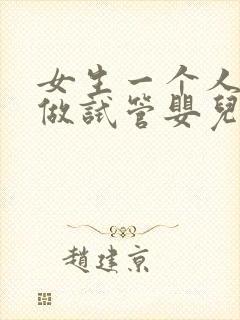 女生一个人
做試管嬰兒
趙建京